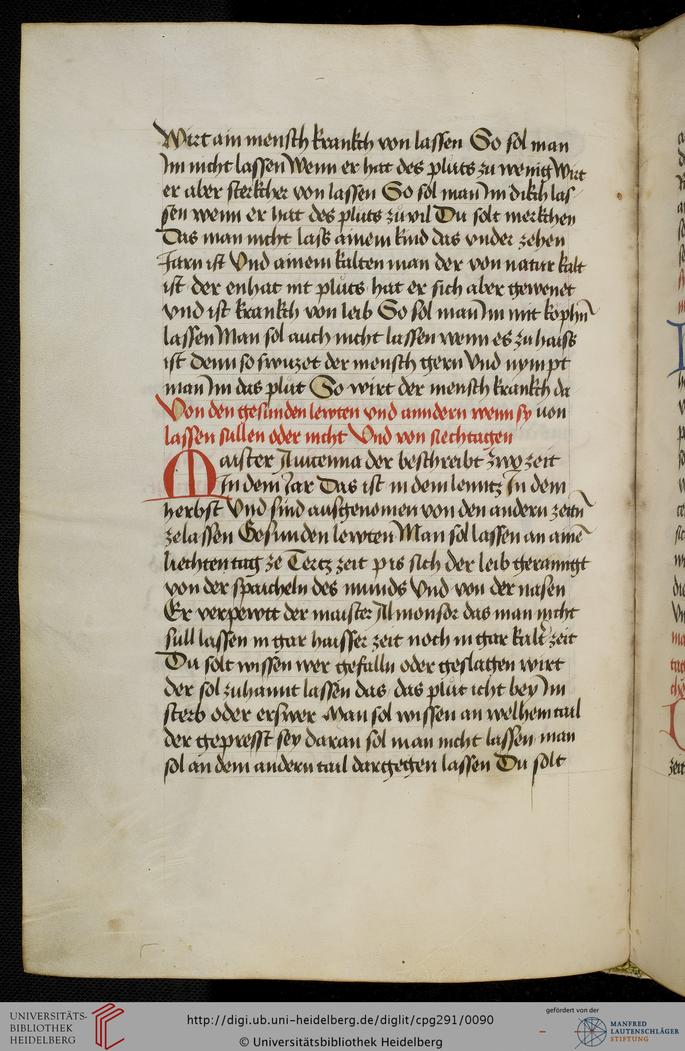 Wirt ain mensch krankch von lassen So sol man
Im nicht lassen Wenn er hat des pluts zu wenig Wirt
er aber sterkcher von lassen So sol man Im dikch las-
sen wenn er hat des pluts zu vil Du solt merkchen
Das man nicht lass ainem kind das vnder zehen
Jarn ist Vnd ainem kalten man der von natur kalt
ist der enhat nit pluts hat er sich aber gewenet
vnd ist krankch von leib So sol man Im mit kophn
lassen Man sol auch nicht lassen wenn es zu haiss
ist denn so swiczet der mensch gern Vnd nympt
man Im das plut So wirt der mensch krankch da
Von den gesunden lewten vnd anndern wenn sy von
lassen sullen oder nicht Vnd von siechtagen
Maister Auicenna der beschreibt zwo zeit
In dem Jar Das ist in dem lenntz In dem
herbst Vnd sind ausgenomen von den andern zeitn
ze lassen Gesunden lewten Man sol lassen an aine
liechten tag ze Tertz zeit pis sich der leib gerainigt
von der spaicheln des munds Vnd von der nasen
Er verpewtt der maister Almonsor das man nicht
sull lassen in gar haisser zeit noch in gar kalt zeit
Du solt wissen wer gefalln oder geslagen wirt
der sol zuhannt lassen das das plut icht bey Im
sterb oder erswer Man sol wissen an welhem tail
der gepresst sey daran sol man nicht lassen man
sol an dem andern tail dargegen lassen Du solt
UNIVERSITÄTS-
BIBLIOTHEK
HEIDELBERG
http://digi.ub.uni-heidelberg.de/diglit/cpg291/0090
© Universitätsbibliothek Heidelberg
gefördert von der
MANFRED
LAUTENSCHLÄGER
STIFTUNG